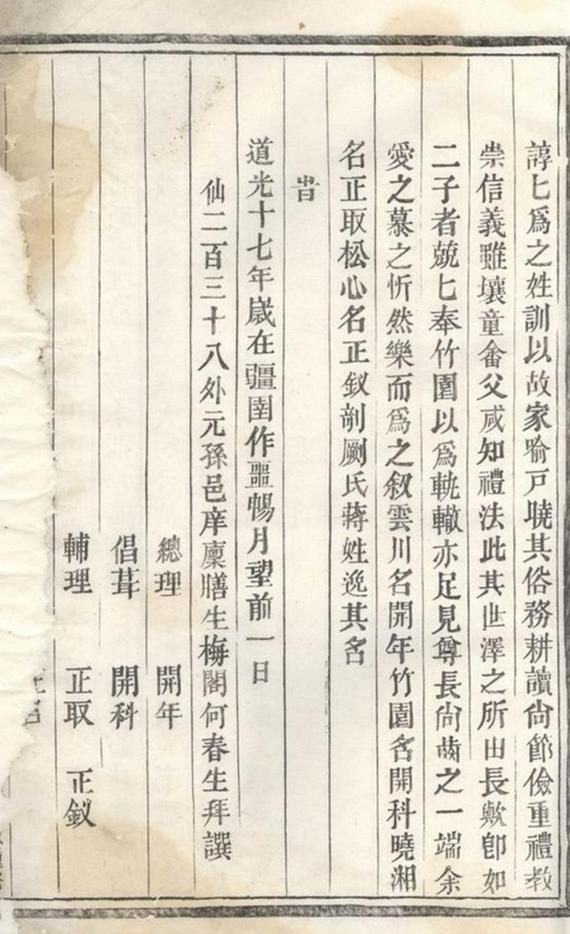 諄匕爲之姓訓以故家喻戸曉其俗務耕讀尙節儉重禮教
崇信義雖壤童畬父咸知禮法此其世澤之所由長歟卽如
二子者兢匕奉竹園以爲軌轍亦足見尊長尙齒之一端余
愛之慕之忻然樂而爲之叙雲川名開年竹園名開科曉湘
名正取松心名正釵剞劂氏蔣姓逸其名
旹
道光十七年歲在疆圉作噩暢月望前一日
仙二百三十八外元孫邑庠廩膳生梅閣何春生拜譔
總理　開年
倡葺　開科
輔理　正取　正釵